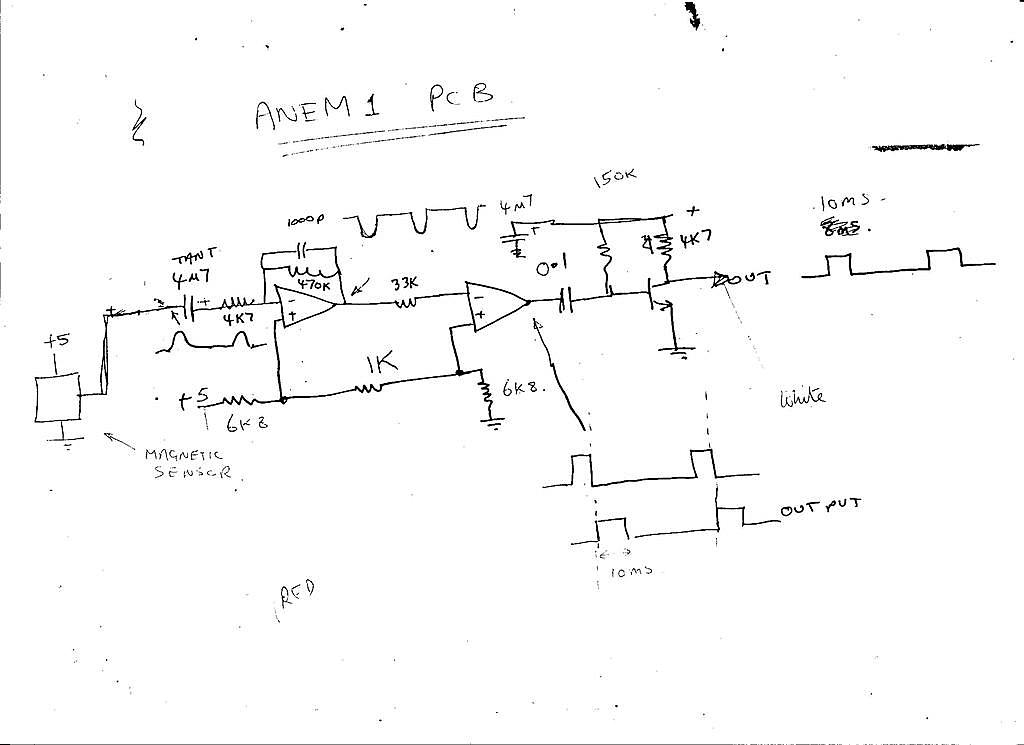 ANEM 1 PCB
150K
10ms
1000p
4µ7
+
4K7
TANT
4µ7
+
470K
33K
0.1
OUT
+
4K7
+5
1K
+5
6K8
6K8.
White
MAGNETIC
SENSOR.
OUTPUT
10ms
RED